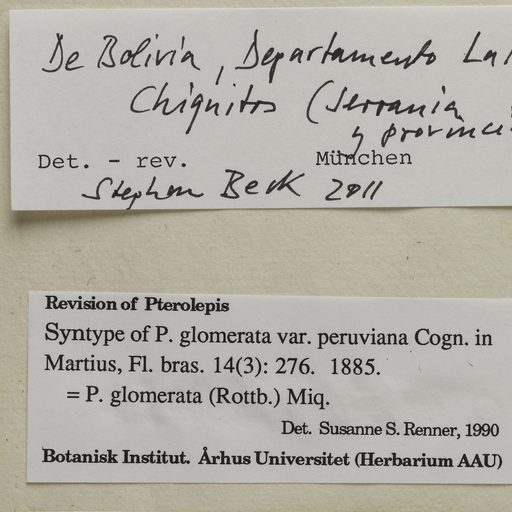 De Bolivia, Departamento La
Chiquitos (Serrania
y provinci
Det. - rev. München
Stephan Beck 2011
Revision of Pterolepis
Syntype of P. glomerata var. peruviana Cogn. in
Martius, Fl. bras. 14(3): 276. 1885.
= P. glomerata (Rottb.) Miq.
Det. Susanne S. Renner, 1990
Botanisk Institut. Århus Universitet (Herbarium AAU)